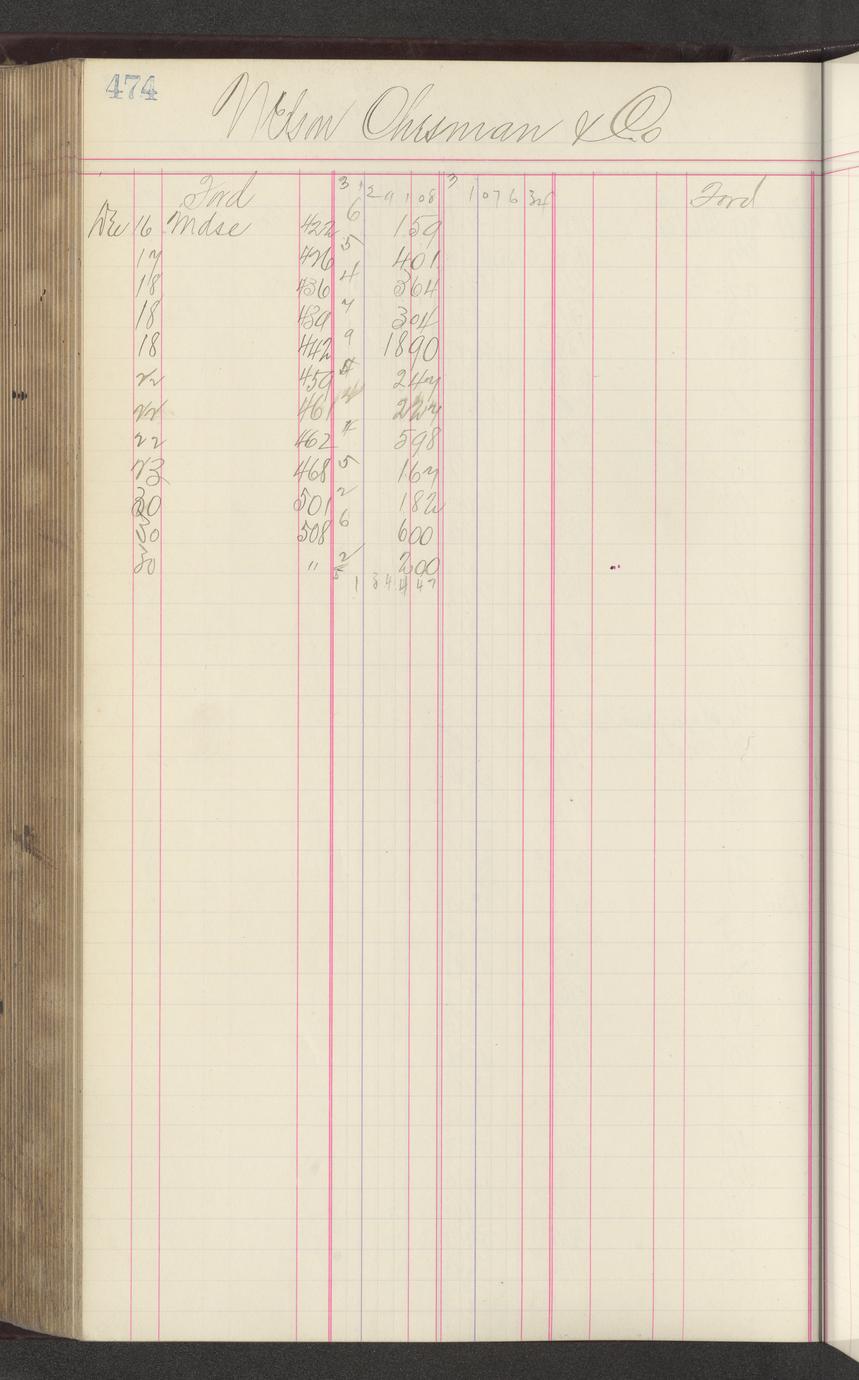 474
Nelson Chesman & Co
Ford 3 1 2 9 1 08 3 1 0 7 6 34 Ford
Dec 16 Mdse 422 6 159
17 426 5 401
18 436 4 364
18 439 7 304
18 442 9 1890
22 459 4 247
22 461 4 227
22 462 4 598
23 468 5 167
30 501 2 182
30 508 6 600
30 " 2 200
5 1 3 4 4 47